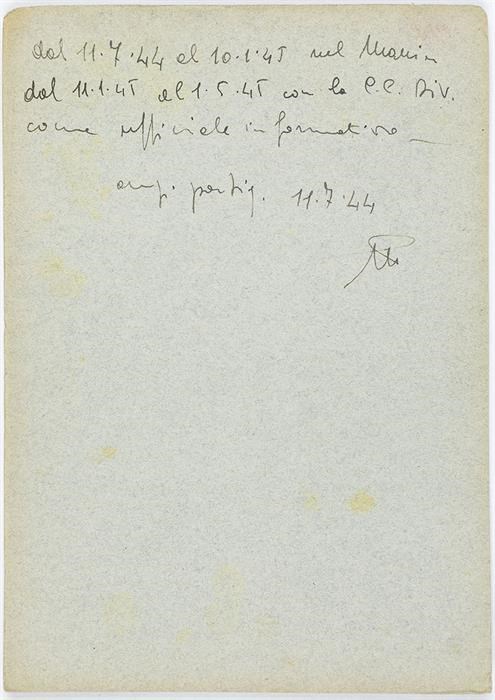 dal 11.7.44 al 10.1.45 nel Manin
dal 11.1.45 al 1.5.45 con la Div.
come ufficiale informativo
partig. 11.7.44